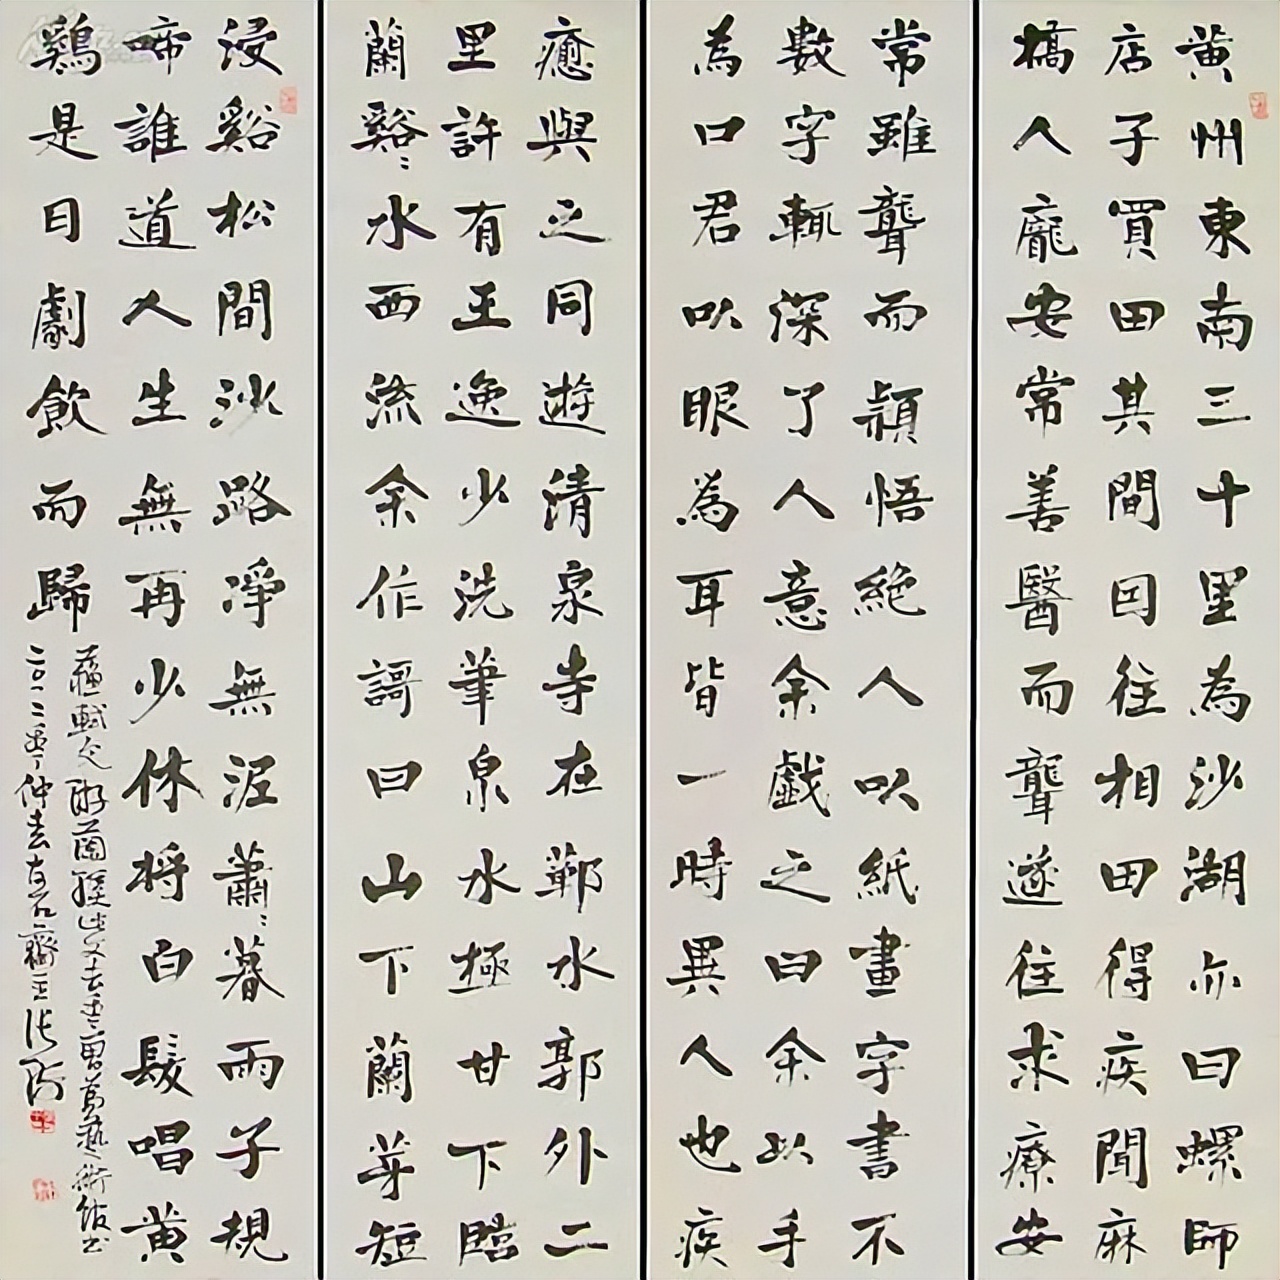 黄州東南三十里為沙湖亦曰螺師
店子買田其間回往相田得疾聞麻
橋人龐安常善醫而聾遂往求療安
常雖聾而穎悟絶人以紙畫字書不
數字輒深了人意余戲之曰余以手
為口君以眼為耳皆一時異人也疾
癒與之同遊清泉寺在蘄水郭外二
里許有王逸少洗筆泉水極甘下臨
蘭谿〻水西流余作謌曰山下蘭芽短
浸谿松間沙路淨無泥蕭〻暮雨子規
啼誰道人生無再少休將白髮唱黄
鷄是日劇飲而歸
蘇軾
二〇一二季仲春